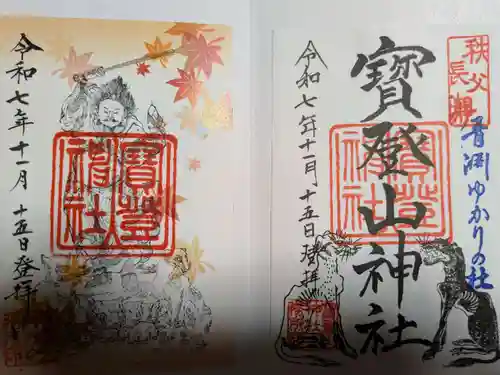 秩父
長瀞
青淵ゆかりの社
寶登山神社
寶登
令和七年十一月十五日登拝
寶登
令和七年十一月十五日登拝